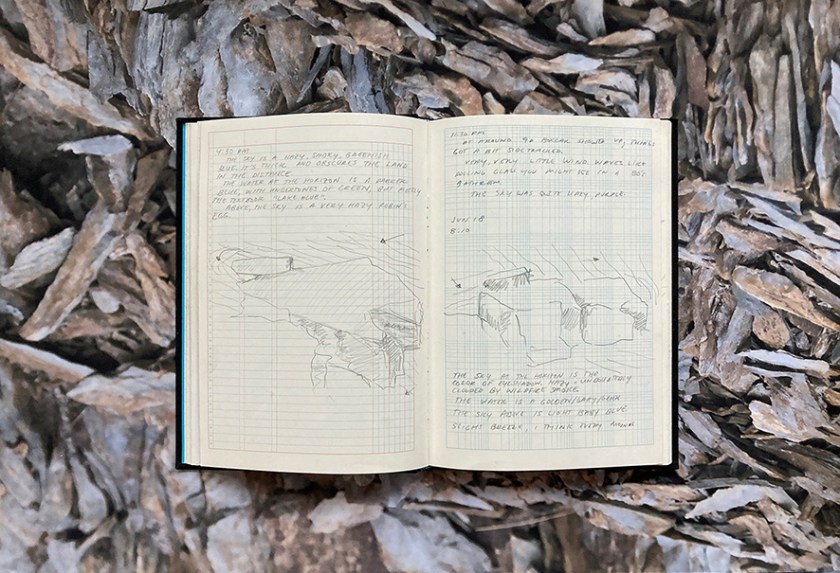 4:30 PM
THE SKY IS A HAZY, SMOKY, GREENISH
BLUE. IT'S THICK AND OBSCURES THE LAND
IN THE DISTANCE.
THE WATER AT THE HORIZON IS A DARKER
BLUE, WITH UNDERTONES OF GREEN, BUT MOSTLY
THE TEXTBOOK "LAKE BLUE".
ABOVE, THE SKY IS A VERY HAZY ROBIN'S
EGG.
PM
AT AROUND THINGS
GET A BIT
VERY, VERY LITTLE WIND. WAVES LIKE
ROLLING GLASS YOU MIGHT SEE IN A '80'S
BATHROOM.
THE SKY WAS QUITE HAZY PURPLE.
JUN 18
8:10
THE SKY AT THE HORIZON IS THE
OF EYESHADOW. HAZY, UNDOUBTEDLY
CLOUDED BY WILDFIRE SMOKE.
THE WATER IS A GOLDEN/GRAY/
THE SKY ABOVE IS LIGHT BABY BLUE.
SLIGHT BREEZE, I THINK EVERY